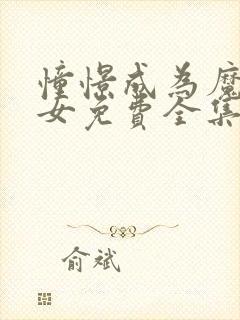 憧憬成为魔
女免費全集
俞斌